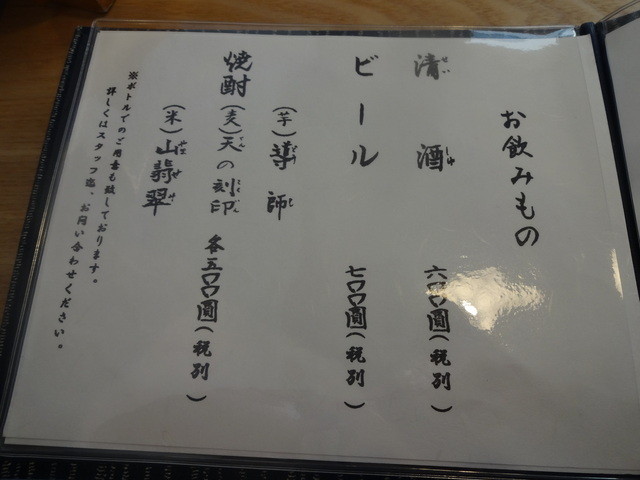 お飲みもの
清酒 六〇〇圓(税別)
せいしゅ
ビール 七〇〇圓(税別)
(芋)導師
焼酎(麦)天の刻印 各五〇〇圓(税別)
(米)山翡翠
※ボトルでのご用意も致しております。
詳しくはスタッフ迄、お問い合わせください。